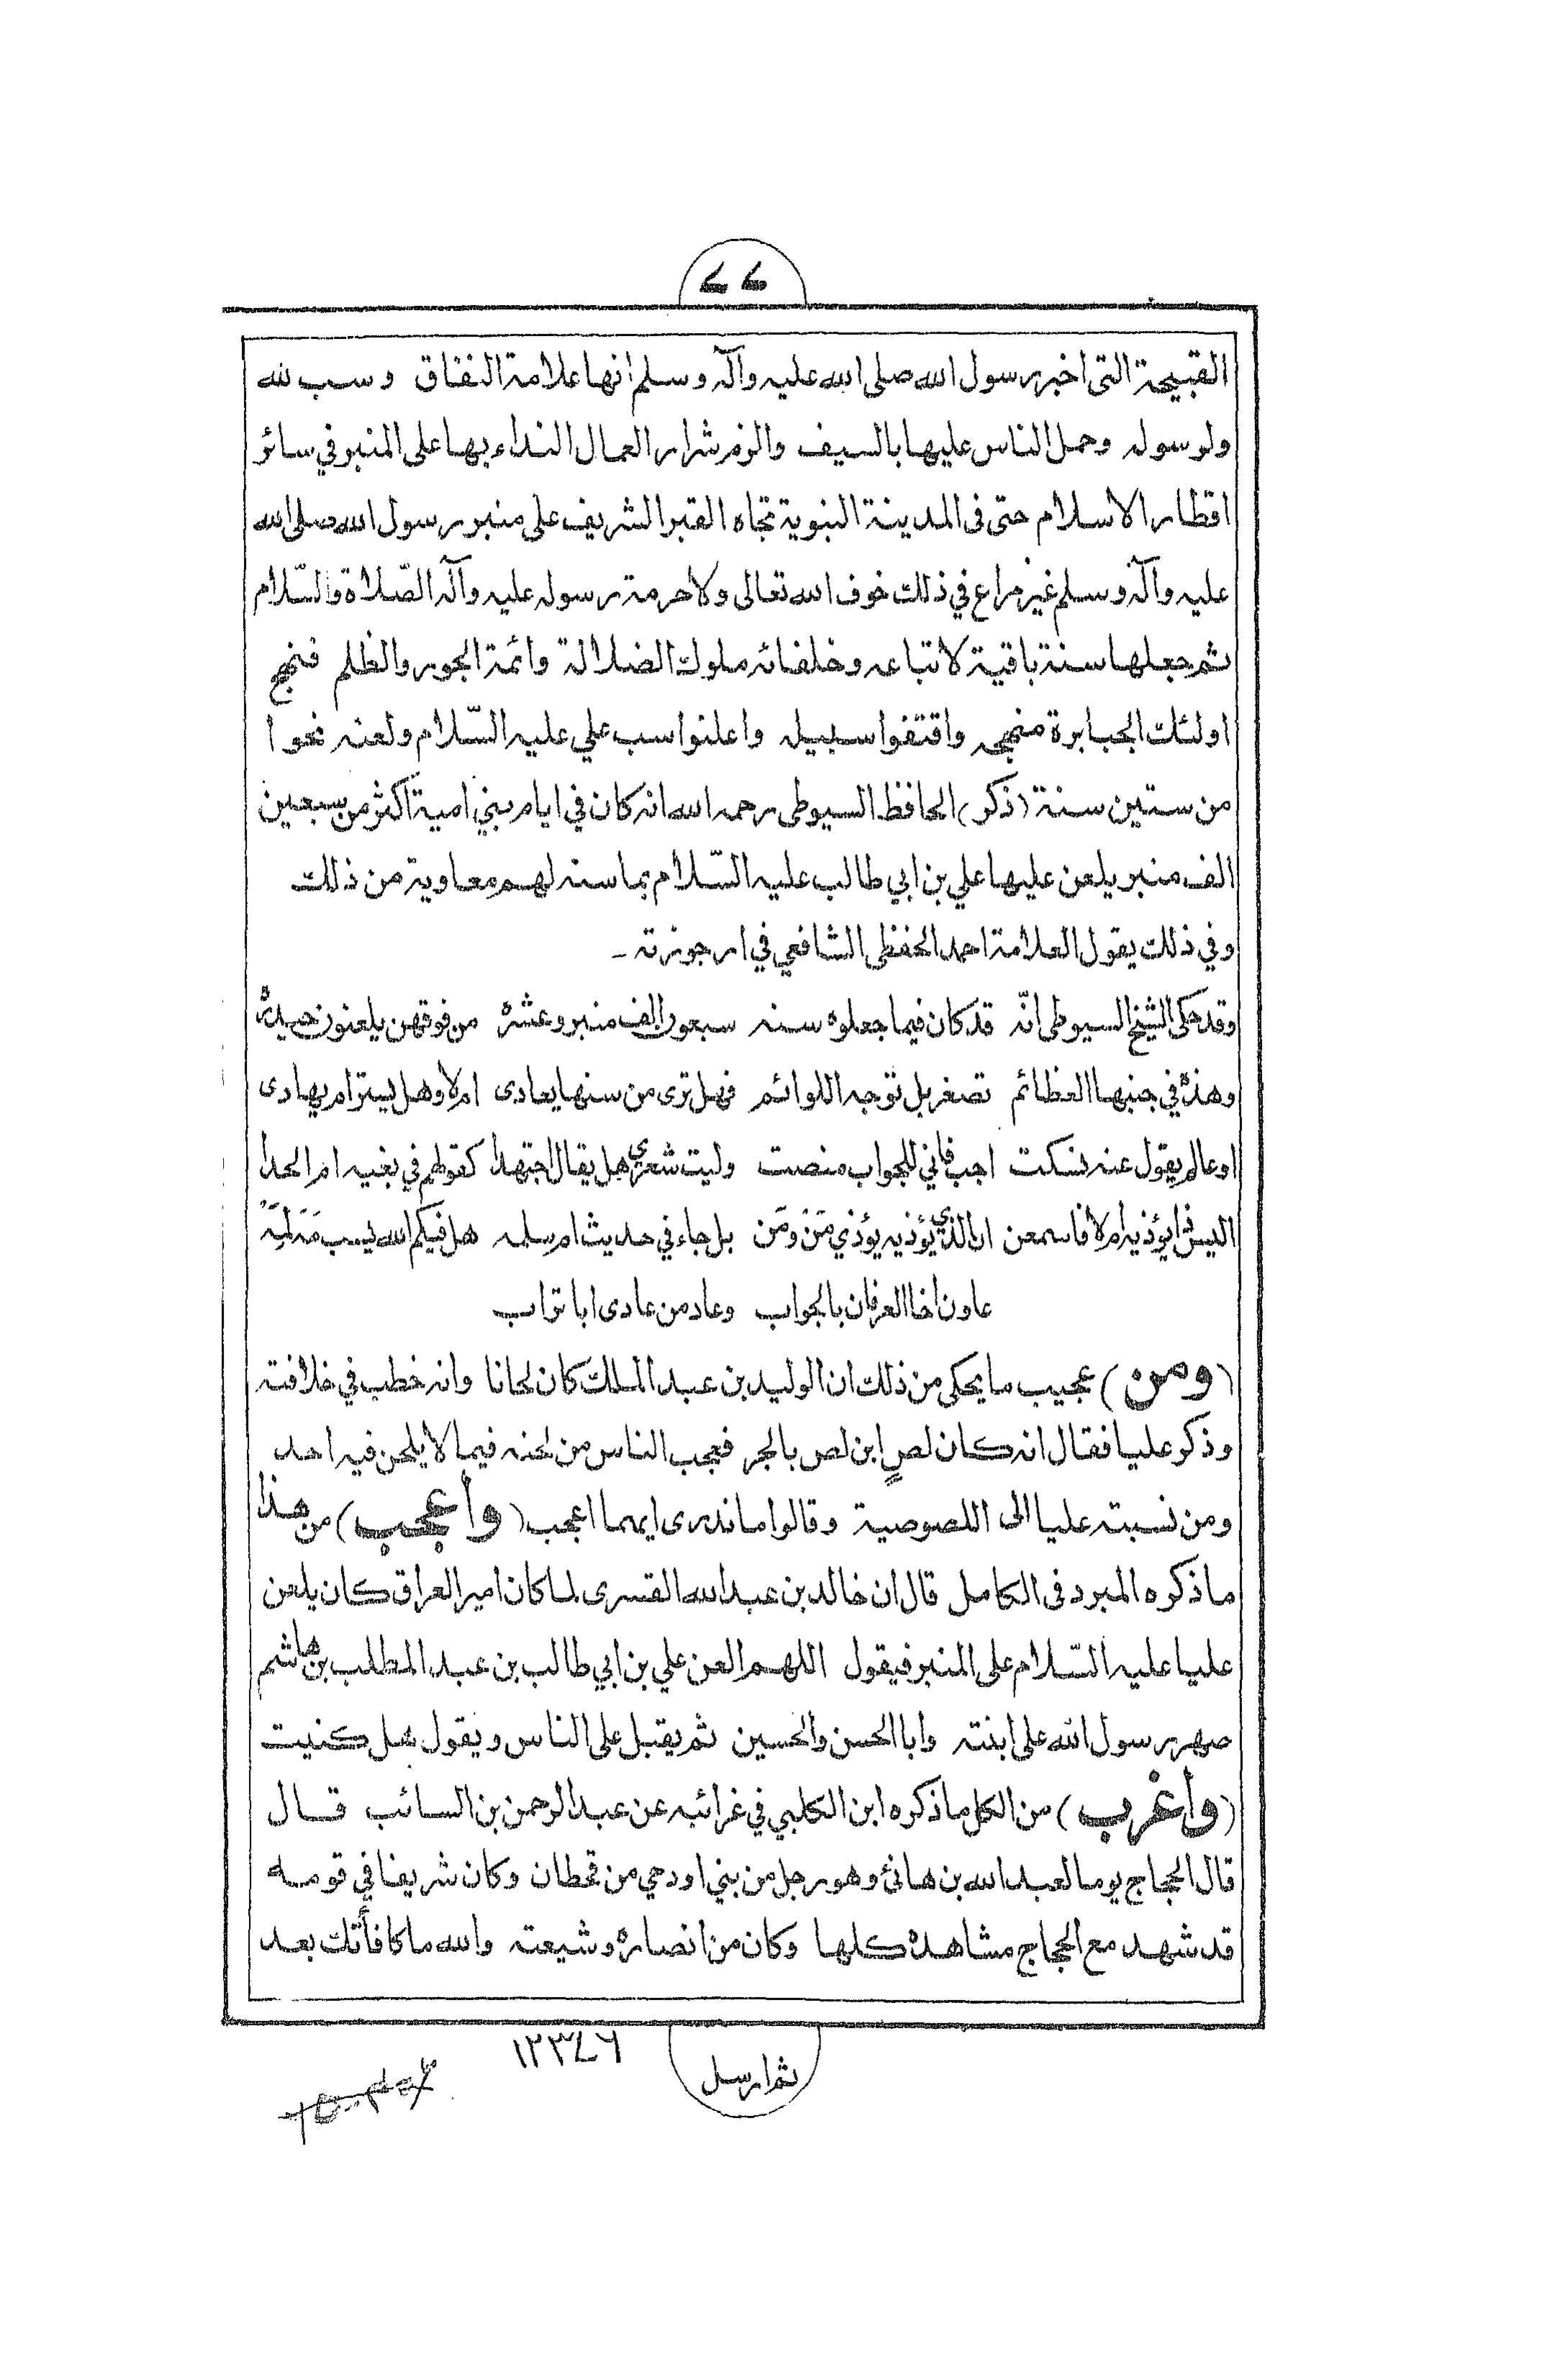 ٧٧
القبيحة التى اخبر رسول الله صلى الله عليه وآله وسلم انها علامة النفاق وسب لله
ولرسوله وحمل الناس عليها بالسيف والزم شرار العمال النداء بها على المنبر في سائر
اقطار الاسلام حتى فى المدينة النبوية تجاه القبر الشريف على منبر رسول الله صلى الله
عليه وآله وسلم غير مراع في ذلك خوف الله تعالى ولا حرمة رسوله عليه وآله الصّلاة والسّلام
ثم جعلها سنة باقية لاتباعه وخلفائه ملوك الضلالة وائمة الجور والظلم فنهج
اولئك الجبابرة منهجه واقتفوا سبيله واعلنوا سب علي عليه السّلام ولعنه نحوا
من ستين سنة (ذكر) الحافظ السيوطى رحمه الله انه كان في ايام بني امية اكثر من سبعين
الف منبر يلعن عليها علي بن ابي طالب عليه السّلام بما سنه لهم معاوية من ذلك
وفي ذلك يقول العلامة احمد الحفظى الشافعي في ارجوزته -
وقد حكى الشيخ السيوطى انّه قد كان فيما جعلوه سنه سبعون الف منبر وعشره من فوقهن يلعنون حيدره
وهذه في جنبها العظائم تصغر بل توجه اللوائم فهل ترى من سنها يعادى ام لا وهل يستر ام يهادى
او عالم يقول عنه نسكت اجب فاني للجواب منصت وليت شعري هل يقال اجتهدا كقولهم في بغيه ام الحدا
اليس ذا يؤذيه ام لا فاسمعن ان الذي يؤذيه يؤذي مَنْ ومَن بل جاء في حديث ام سلمه هل فيكم الله يسب مَهْ لِمَهْ
عاون اخا العرفان بالجواب وعاد من عادى ابا تراب
(ومن) عجيب ما يحكى من ذلك ان الوليد بن عبد الملك كان لحانا وانه خطب في خلافته
وذكر عليا فقال انه كان لصٍ ابن لص بالجر فعجب الناس من لحنه فيما لا يلحن فيه احد
ومن نسبته عليا الى اللصوصية وقالوا ما ندرى ايهما اعجب (وأعجب) من هذا
ما ذكره المبرد فى الكامل قال ان خالد بن عبد الله القسرى لما كان امير العراق كان يلعن
عليا عليه السّلام على المنبر فيقول اللهم العن علي بن ابي طالب بن عبد المطلب بن هاشم
صهر رسول الله على ابنته وابا الحسن والحسين ثم يقبل على الناس ويقول هل كنيت
(وأغرب) من الكل ما ذكره ابن الكلبي في غرائبه عن عبد الرحمن بن السائب قال
قال الحجاج يوما لعبد الله بن هانئ وهو رجل من بني اود حي من قحطان وكان شريفا في قومه
قد شهد مع الحجاج مشاهده كلها وكان من انصاره وشيعته والله ما كافأتك بعد
ثم ارسل
١٢٣٤٦